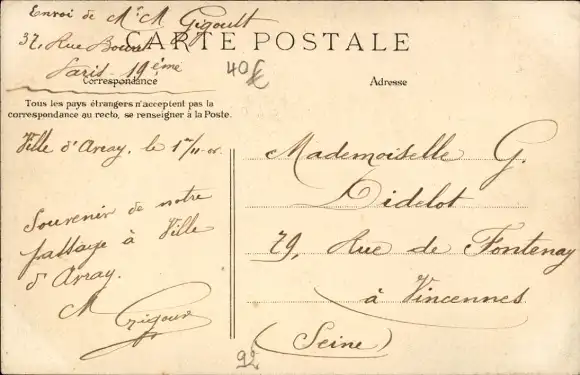 Envoi de Mr M Gigoult
37, Rue Bouret
Paris 19ème
CARTE POSTALE
40€
Correspondance
Adresse
Tous les pays étrangers n'acceptent pas la
correspondance au recto, se renseigner à la Poste.
Ville d'Avray, le 1/11-06.
Souvenir de notre
passage à Ville
d'Avray.
M
Mademoiselle G.
Didelot
79, Rue de Fontenay
à Vincennes
(Seine)
92